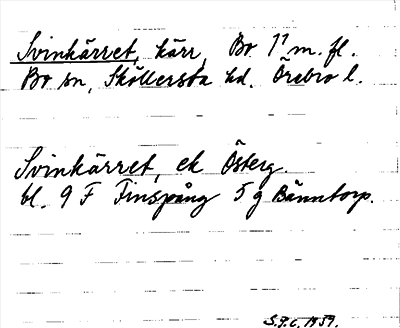 Svinkärret, kärr, Bo 1⁷ m. fl.
Bo sn, Sköllersta hd. Örebro l.
Svinkärret, ek Österg.
bl. 9 F Finspång 5 g Bänntorp.
S.G.C. 1939.